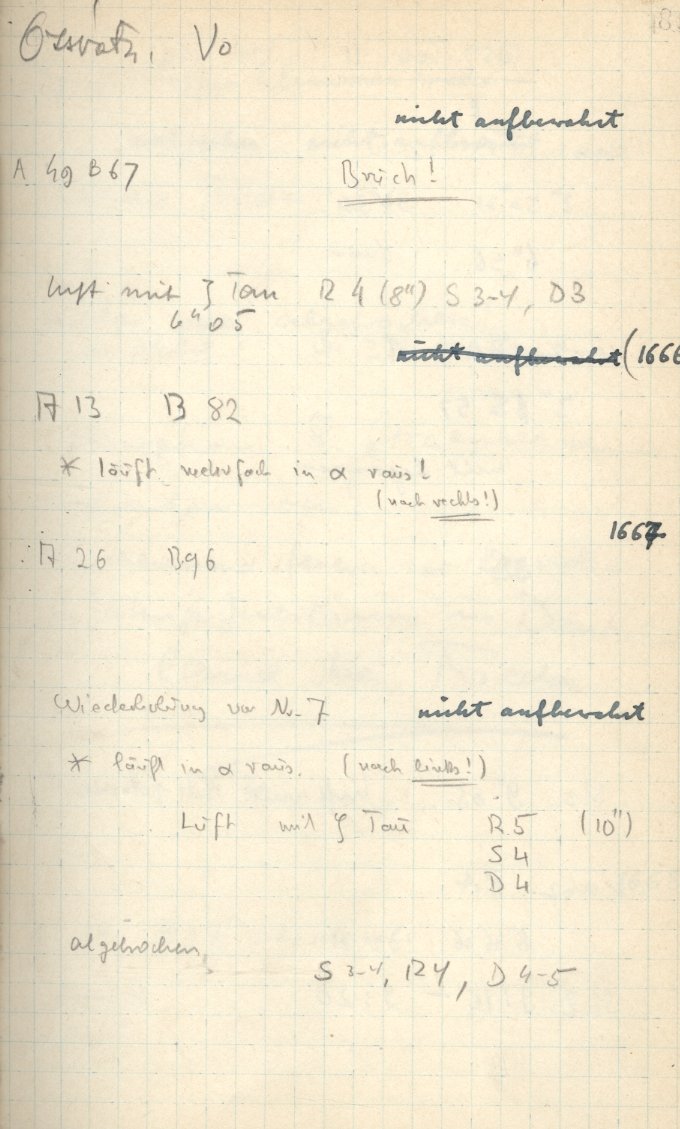 Vo
nicht aufbewahrt
A 49 B 67 Brüch!
Luft mit ζ Tau R 4 (8") S 3-4, D3
6h 05
nicht aufbewahrt (1666
A 13 B 82
* läuft in α raus!
(nach rechts!)
1667
A 26 B 96
Wiederholung von Nr. 7 nicht aufbewahrt
* läuft in α raus. (nach links!)
Luft mit ζ Tau R 5 (10")
S 4
D 4
abgebrochen,
S 3-4, R4, D 4-5